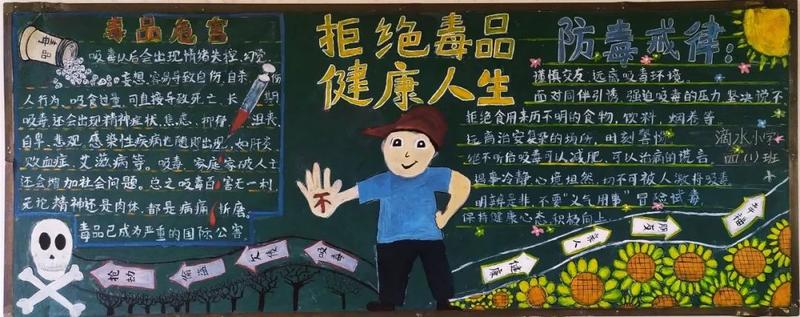 毒品
毒品危害
吸毒以后会出现情绪失控、幻觉
妄想,容易导致自伤、自杀、伤
人行为,吸食过量,可直接导致死亡,长期
吸毒还会出现精神症状,焦虑、抑郁
自卑、悲观,感染性疾病也随即出现,如肝炎
败血症,艾滋病等。吸毒,家庭家破人亡
还会增加社会问题,总之吸毒百害无一利,
无论精神还是肉体,都是病痛折磨。
毒品已成为严重的国际公害
抢劫
偷盗
欠债
吸毒
拒绝毒品
健康人生
不
防毒戒律:
谨慎交友,远离吸毒环境。
面对同伴引诱、强迫吸毒的压力坚决说不
拒绝食用来历不明的食物,饮料,烟卷等
远离治安复杂的场所,时刻警惕
绝不听信吸毒可以减肥,可以治病的谎言
遇事冷静心境坦然,切不可被人激将吸毒
明辨是非,不要“义气用事”冒险试毒
保持健康心态,积极向上
滴水小学
四(1)班
健康
家人
朋友
幸福